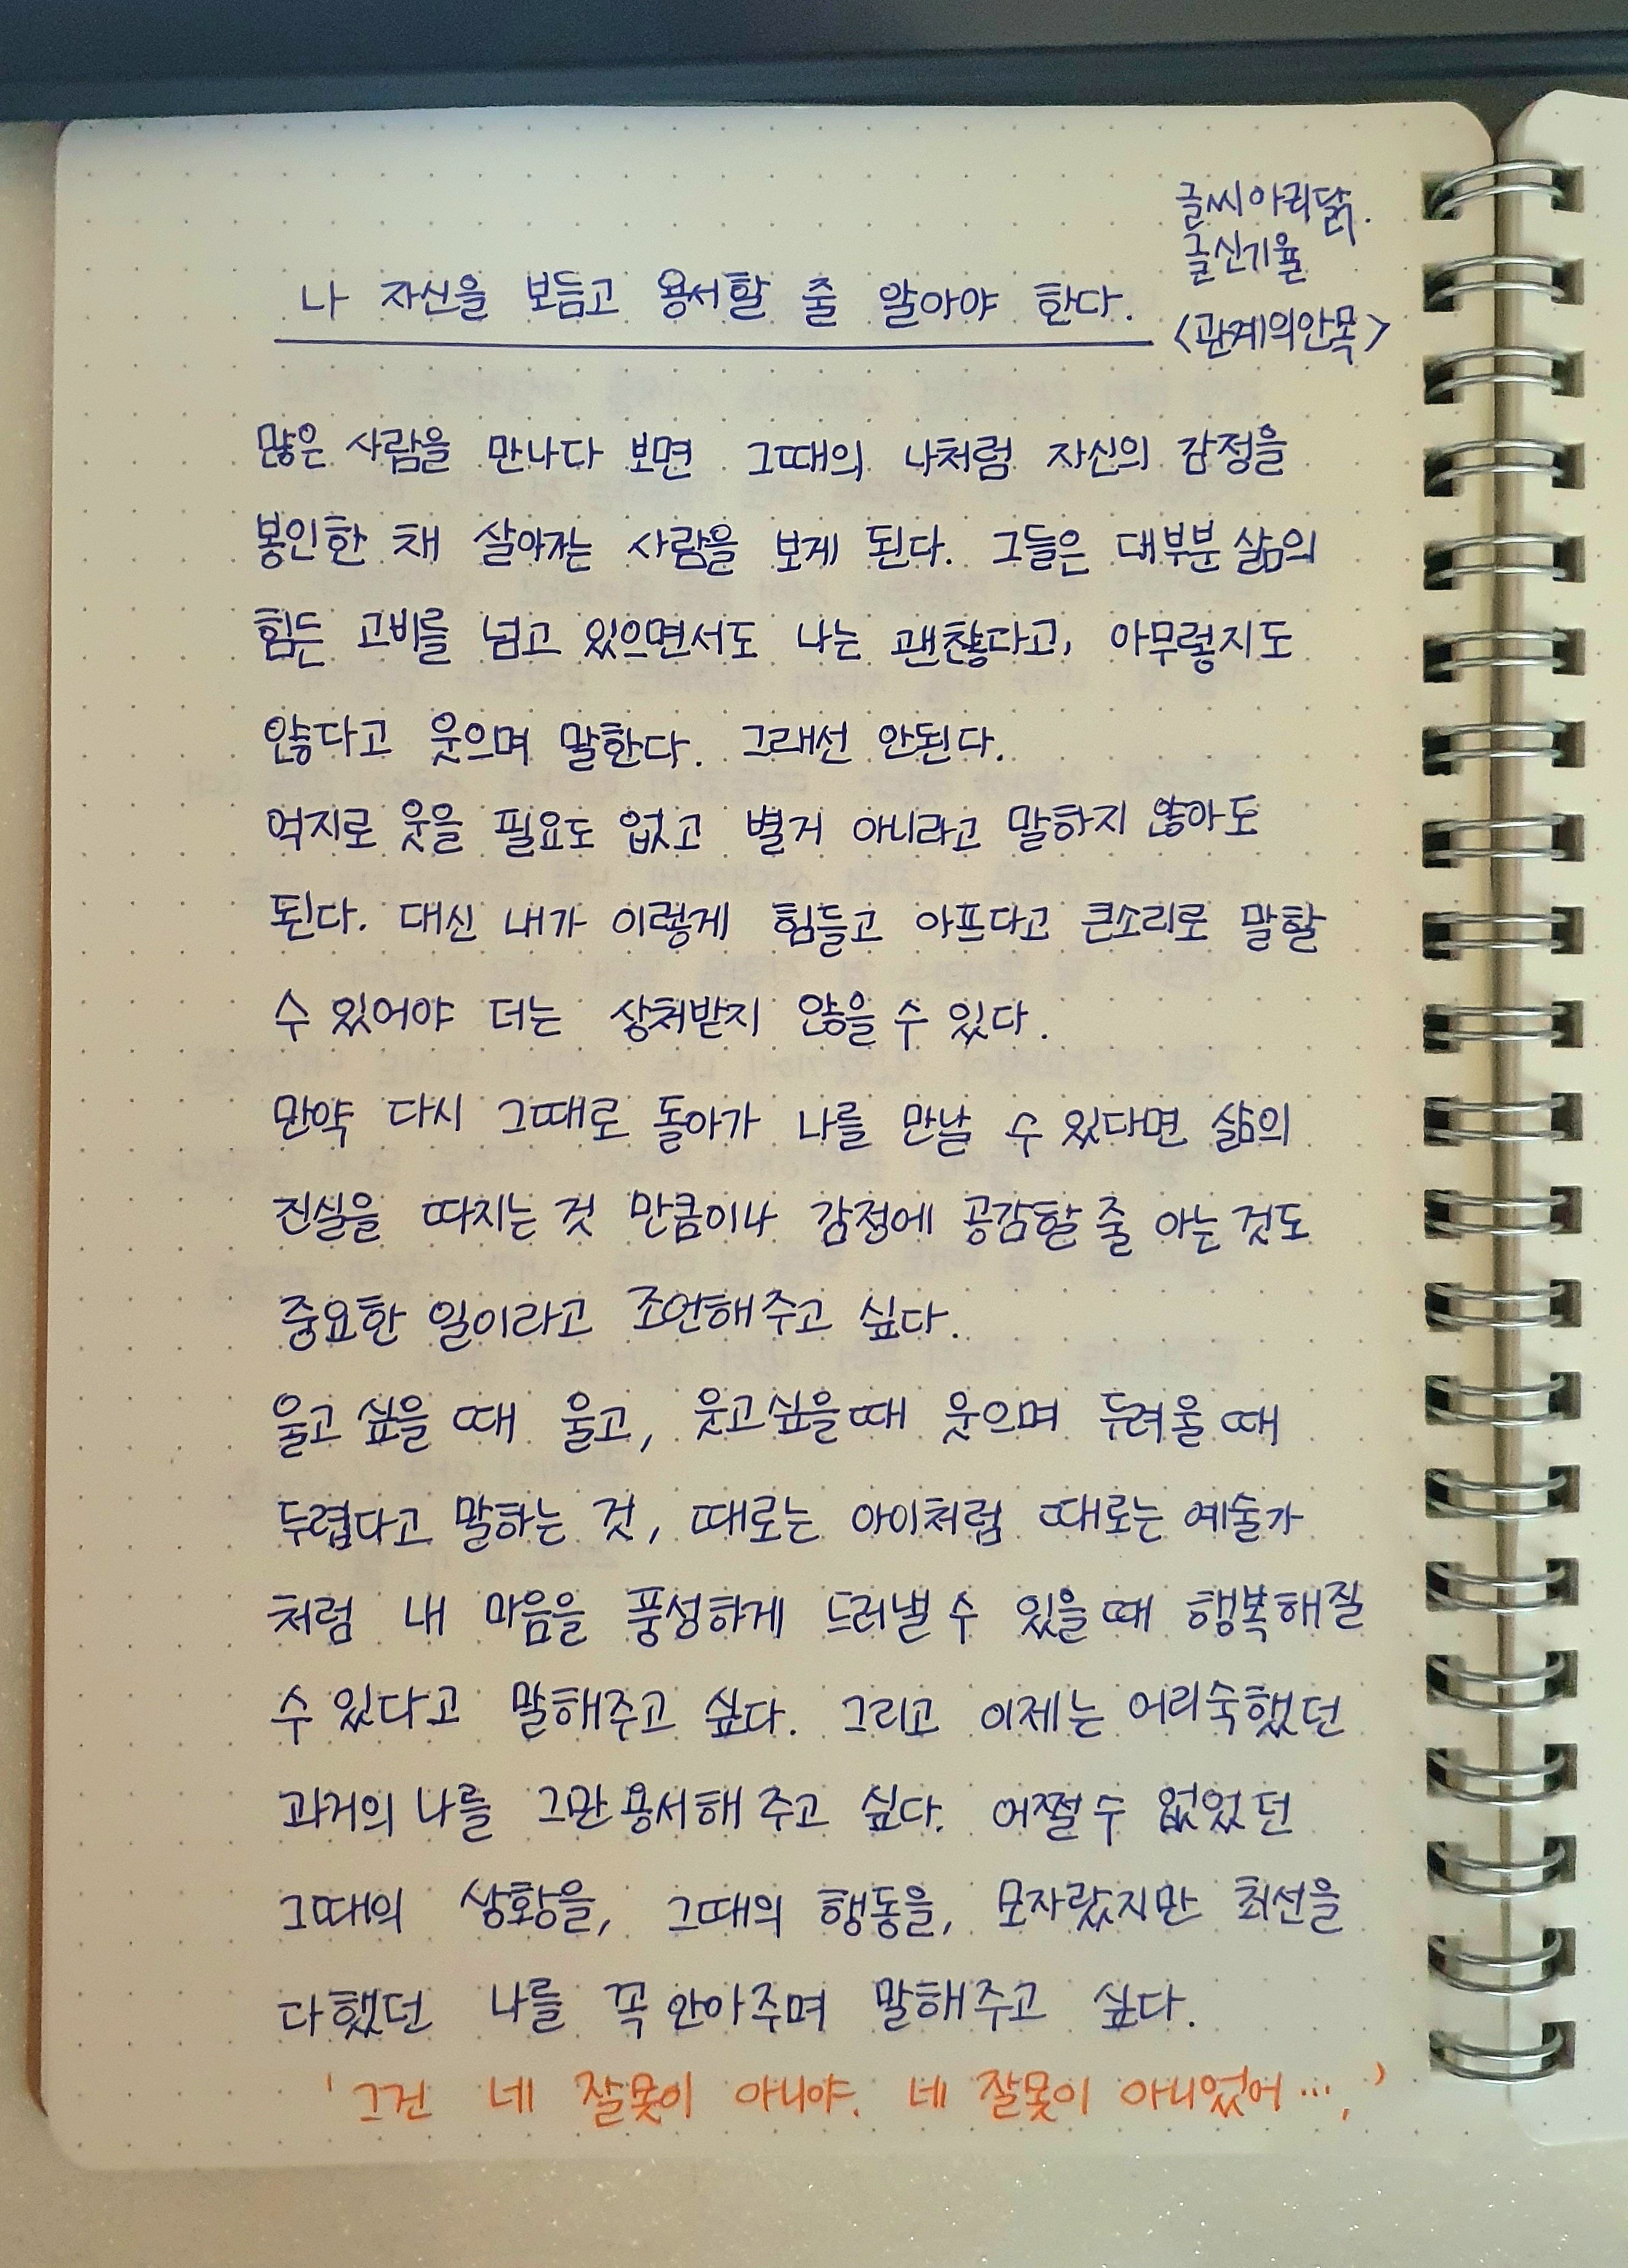 글씨아리닭.
글신기율
나 자신을 보듬고 용서할 줄 알아야 한다.
<관계의안목>
많은 사람을 만나다 보면 그때의 나처럼 자신의 감정을
봉인한 채 살아가는 사람을 보게 된다. 그들은 대부분 삶의
힘든 고비를 넘고 있으면서도 나는 괜찮다고, 아무렇지도
않다고 웃으며 말한다. 그래선 안된다.
억지로 웃을 필요도 없고 별거 아니라고 말하지 않아도
된다. 대신 내가 이렇게 힘들고 아프다고 큰소리로 말할
수 있어야 더는 상처받지 않을 수 있다.
만약 다시 그때로 돌아가 나를 만날 수 있다면 삶의
진실을 따지는 것 만큼이나 감정에 공감할 줄 아는 것도
중요한 일이라고 조언해주고 싶다.
울고 싶을 때 울고, 웃고싶을때 웃으며 두려울 때
두렵다고 말하는 것, 때로는 아이처럼 때로는 예술가
처럼 내 마음을 풍성하게 드러낼 수 있을때 행복해질
수 있다고 말해주고 싶다. 그리고 이제는 어리숙했던
과거의 나를 그만 용서해 주고 싶다. 어쩔 수 없었던
그때의 상황을, 그때의 행동을, 모자랐지만 최선을
다했던 나를 꼭 안아주며 말해주고 싶다.
'그건 네 잘못이 아니야. 네 잘못이 아니었어....'